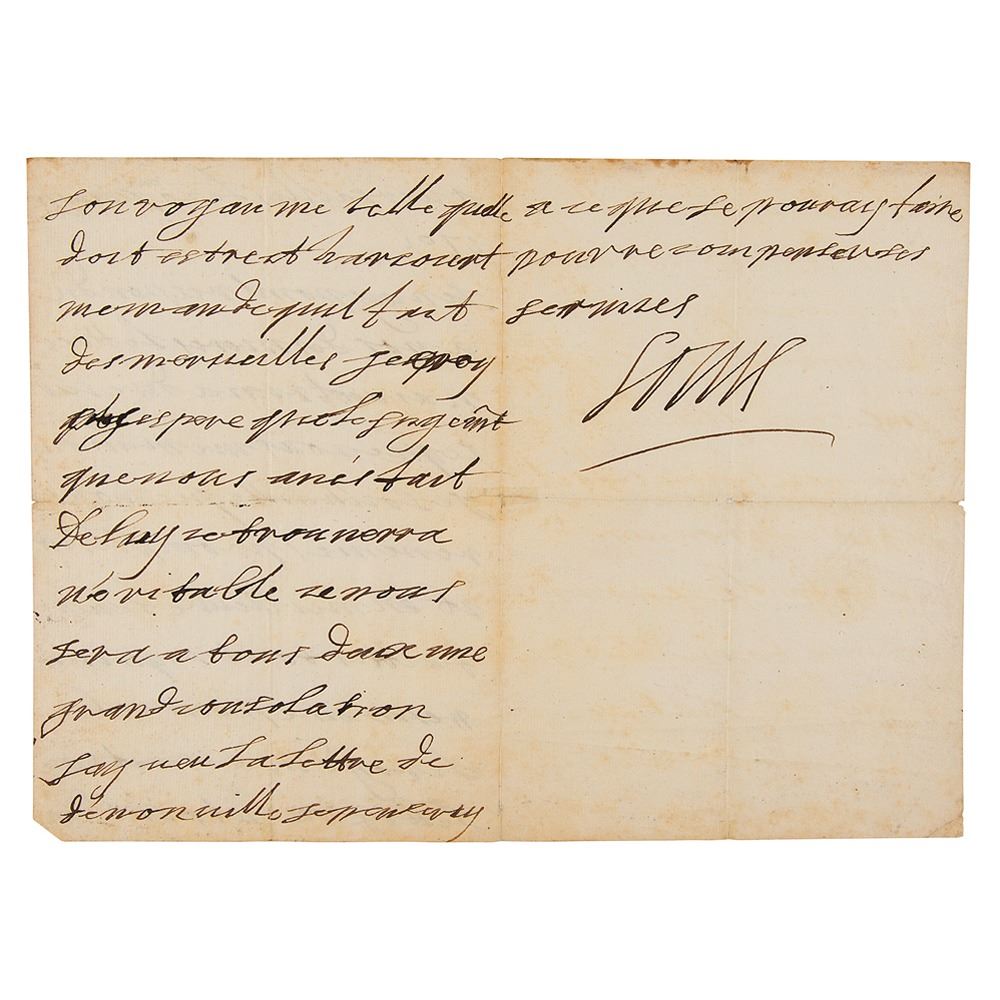 son royaume telle quelle
doit estre et harcourt
me mande quil fait
des merveilles je croy
espere que le jugemt
que nous avés fait
De luy se trouverra
véritable ce nous
sera a tous Deux une
grand consolation
jay veu la lettre de
dénonville je penseray
a ce que je pouray faire
pour recompenser ses
services
Louis